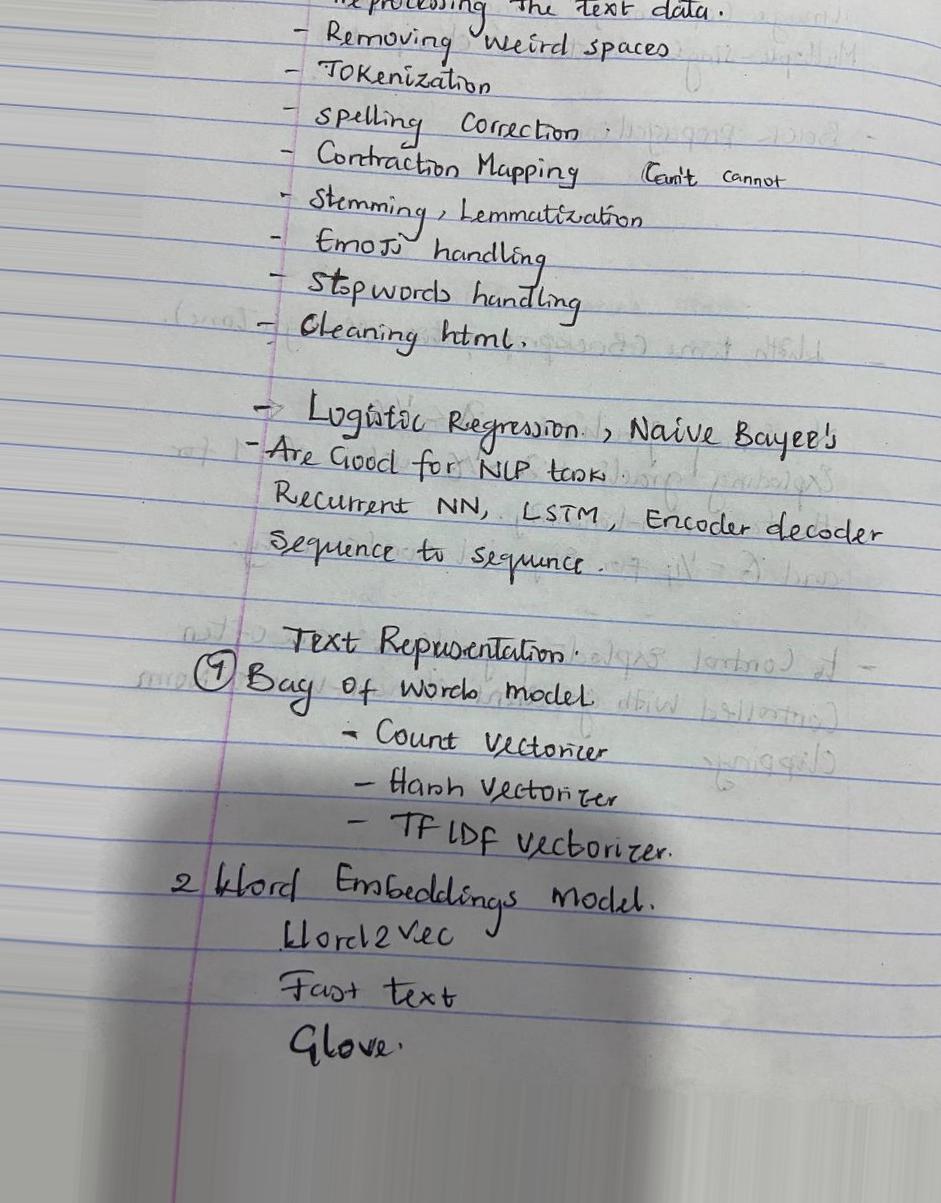 Preprocessing the text data.
- Removing weird spaces
- Tokenization
- spelling correction.
- Contraction Mapping Can't cannot
- Stemming, Lemmatization
- Emoji handling
- Stopwords handling
- Cleaning html.
→ Logistic Regression, Naive Bayee's
- Are Good for NLP task.
Recurrent NN, LSTM, Encoder decoder
sequence to sequence.
Text Representation.
1 Bag of words model
- Count vectorizer
- Hash vectorizer
- TF IDF vectorizer.
2 Word Embeddings model.
Word2vec
Fast text
Glove.